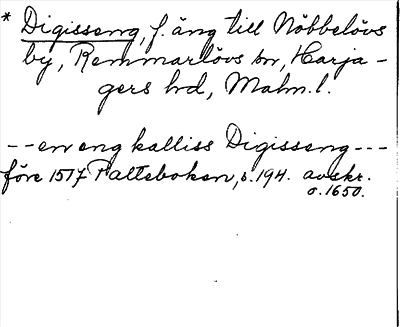 * Digisseng, f. äng till Nöbbelövs
by, Remmarlövs sn, Harja-
gers hd, Malm. l.
-- en eng kalliss Digisseng ---
före 1517 Palteboken, s. 194. avskr.
o. 1650.